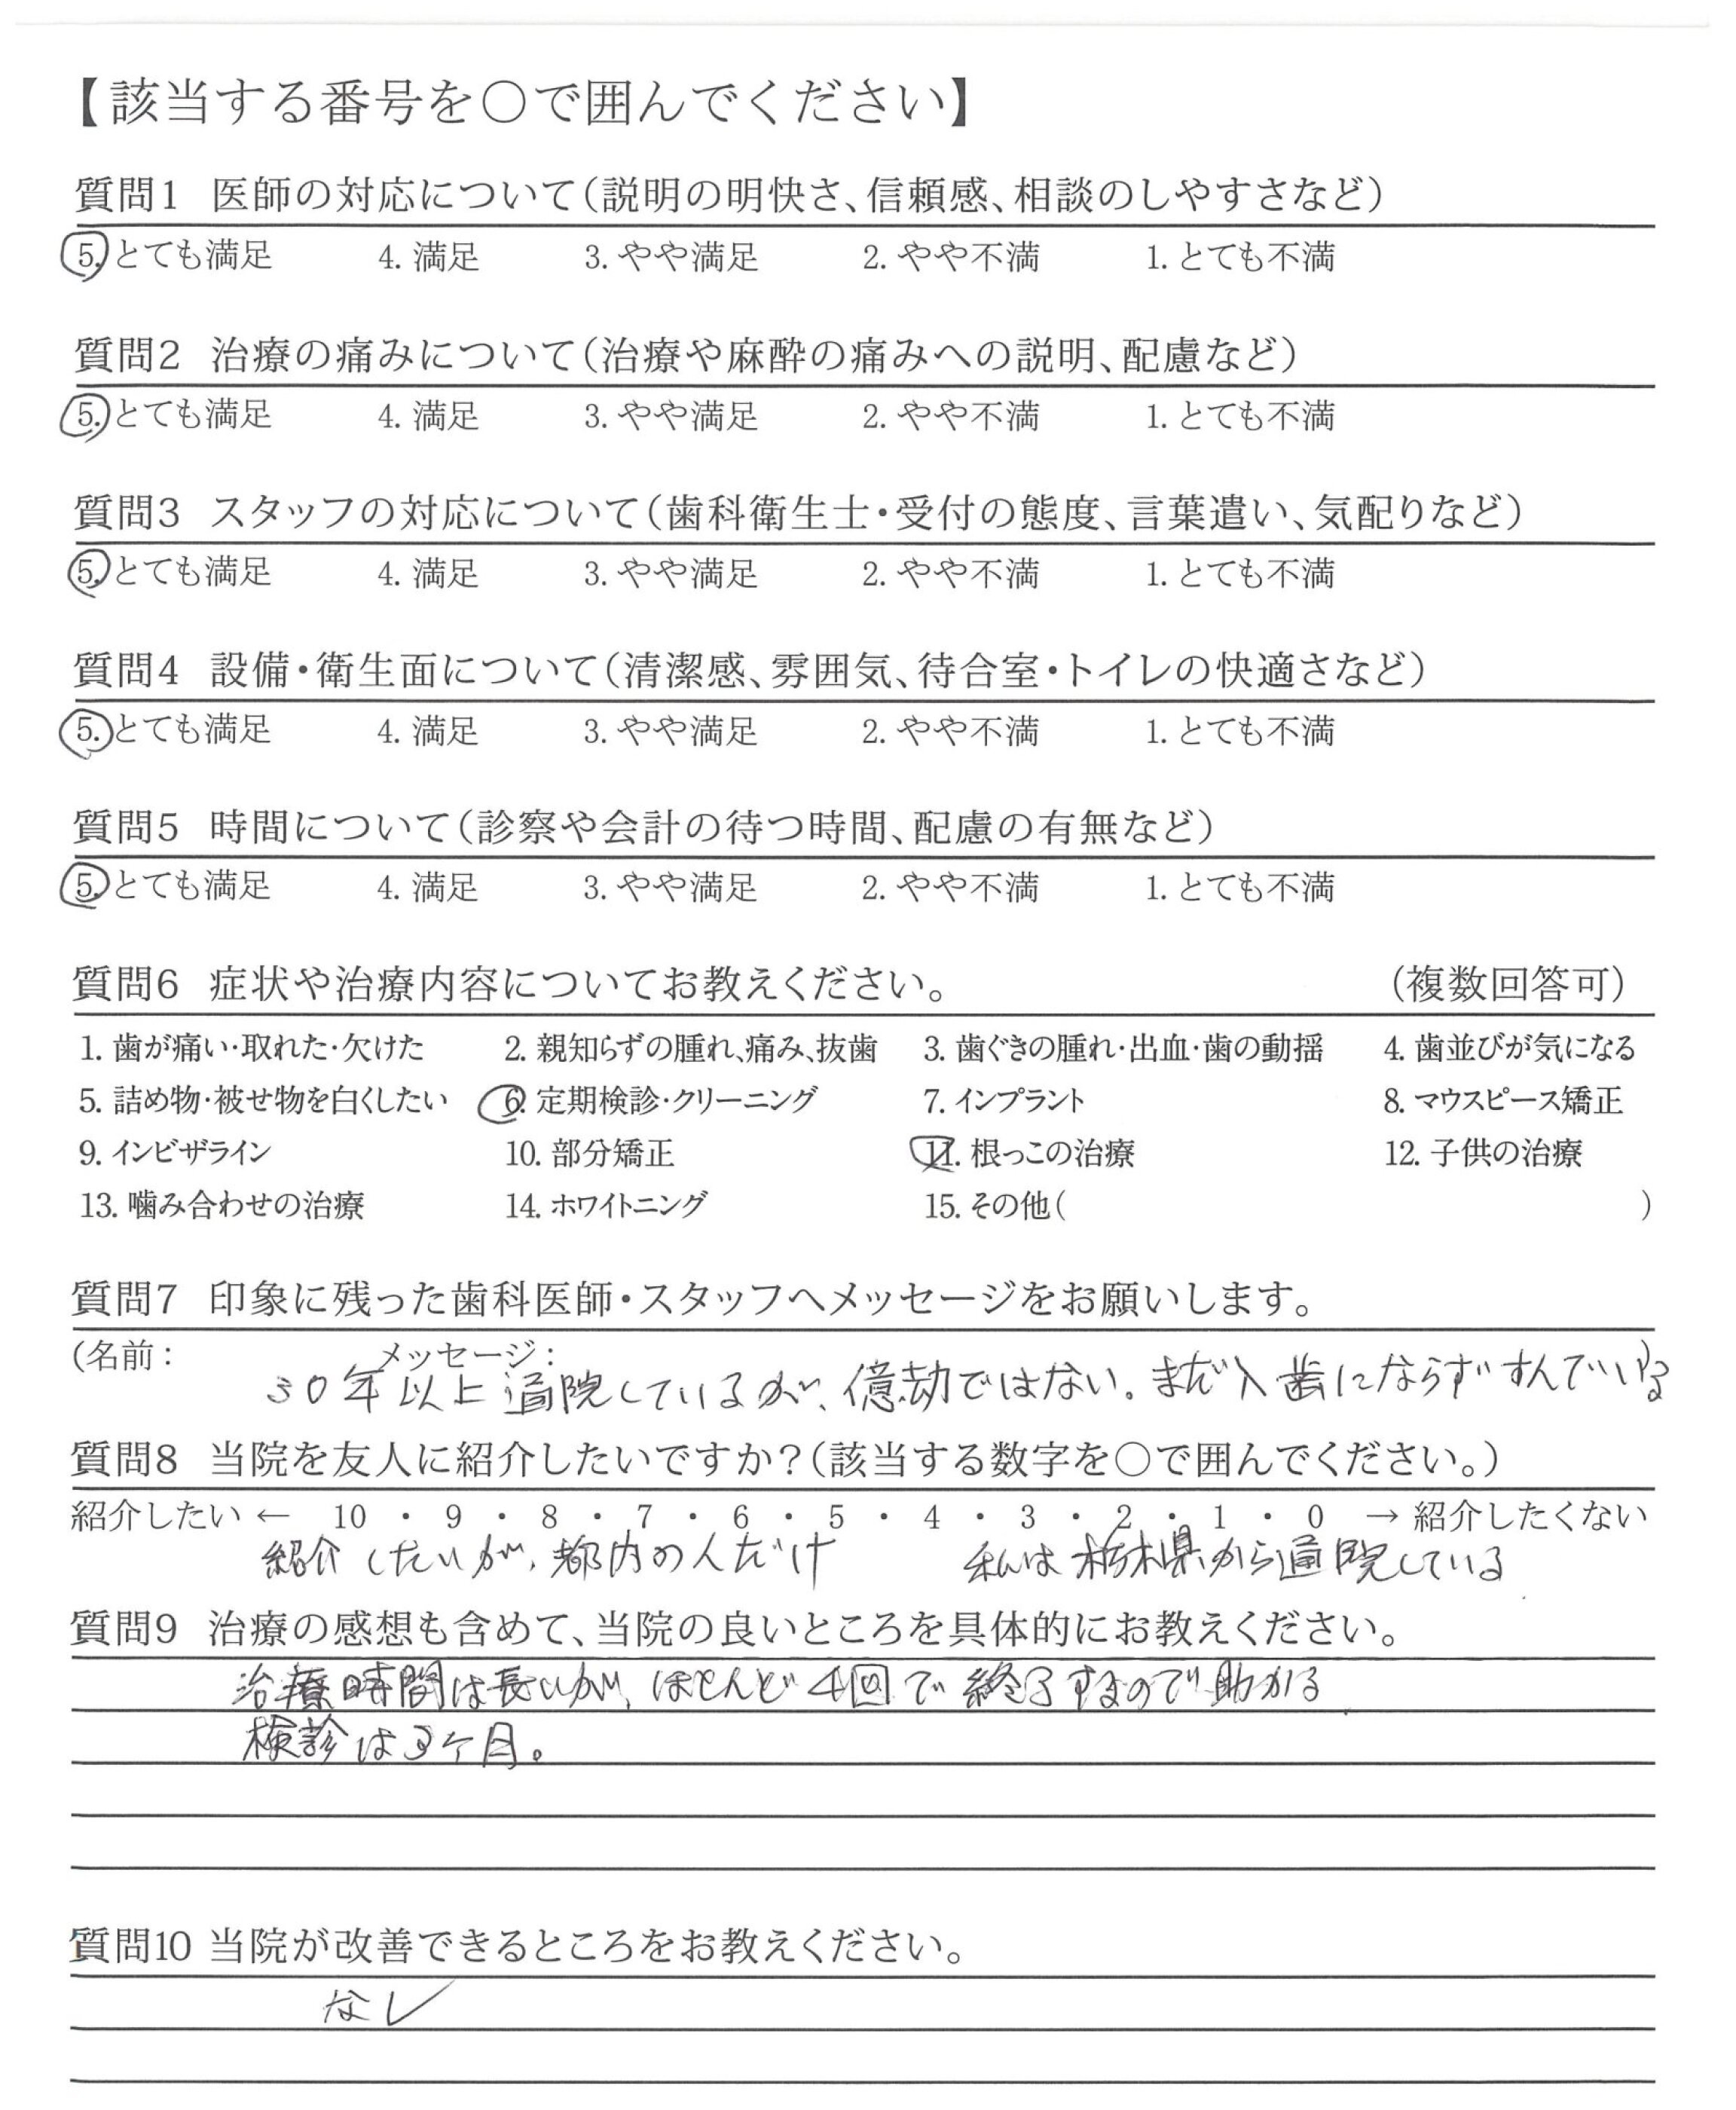 【該当する番号を○で囲んでください】
質問1 医師の対応について(説明の明快さ、信頼感、相談のしやすさなど)
5. とても満足 4. 満足 3. やや満足 2. やや不満 1. とても不満
質問2 治療の痛みについて(治療や麻酔の痛みへの説明、配慮など)
5. とても満足 4. 満足 3. やや満足 2. やや不満 1. とても不満
質問3 スタッフの対応について(歯科衛生士・受付の態度、言葉遣い、気配りなど)
5. とても満足 4. 満足 3. やや満足 2. やや不満 1. とても不満
質問4 設備・衛生面について(清潔感、雰囲気、待合室・トイレの快適さなど)
5. とても満足 4. 満足 3. やや満足 2. やや不満 1. とても不満
質問5 時間について(診察や会計の待つ時間、配慮の有無など)
5. とても満足 4. 満足 3. やや満足 2. やや不満 1. とても不満
質問6 症状や治療内容についてお教えください。 (複数回答可)
1. 歯が痛い・取れた・欠けた 2. 親知らずの腫れ、痛み、抜歯 3. 歯ぐきの腫れ・出血・歯の動揺 4. 歯並びが気になる
5. 詰め物・被せ物を白くしたい 6. 定期検診・クリーニング 7. インプラント 8. マウスピース矯正
9. インビザライン 10. 部分矯正 11. 根っこの治療 12. 子供の治療
13. 噛み合わせの治療 14. ホワイトニング 15. その他( )
質問7 印象に残った歯科医師・スタッフへメッセージをお願いします。
(名前: メッセージ: )
30年以上通院しているが、億劫ではない。まだ入歯にならずすんでいる
質問8 当院を友人に紹介したいですか?(該当する数字を○で囲んでください。)
紹介したい ← 10 ・ 9 ・ 8 ・ 7 ・ 6 ・ 5 ・ 4 ・ 3 ・ 2 ・ 1 ・ 0 → 紹介したくない
紹介したいが、都内の人だけ 私は栃木県から通院している
質問9 治療の感想も含めて、当院の良いところを具体的にお教えください。
治療時間は長いが、ほとんど4回で終了するので助かる
検診は3ケ月。
質問10 当院が改善できるところをお教えください。
なし